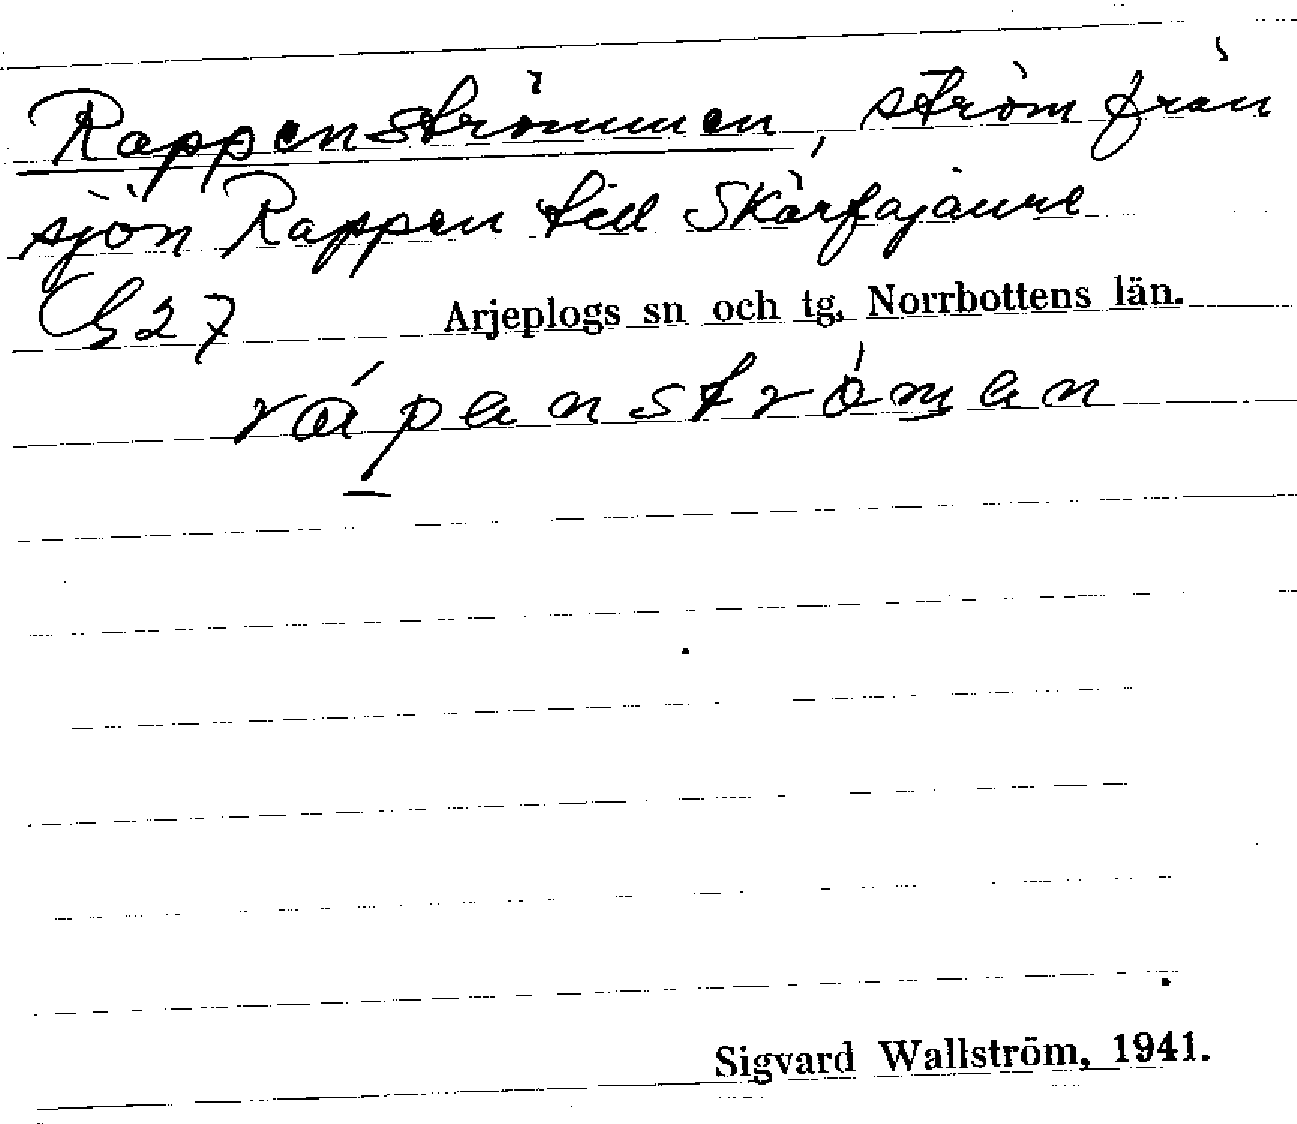 Rappenströmmen, ström från
sjön Rappen till Skärfajaure
G 27 Arjeplogs sn och tg, Norrbottens län.
rápenstrǿmen
Sigvard Wallström, 1941.